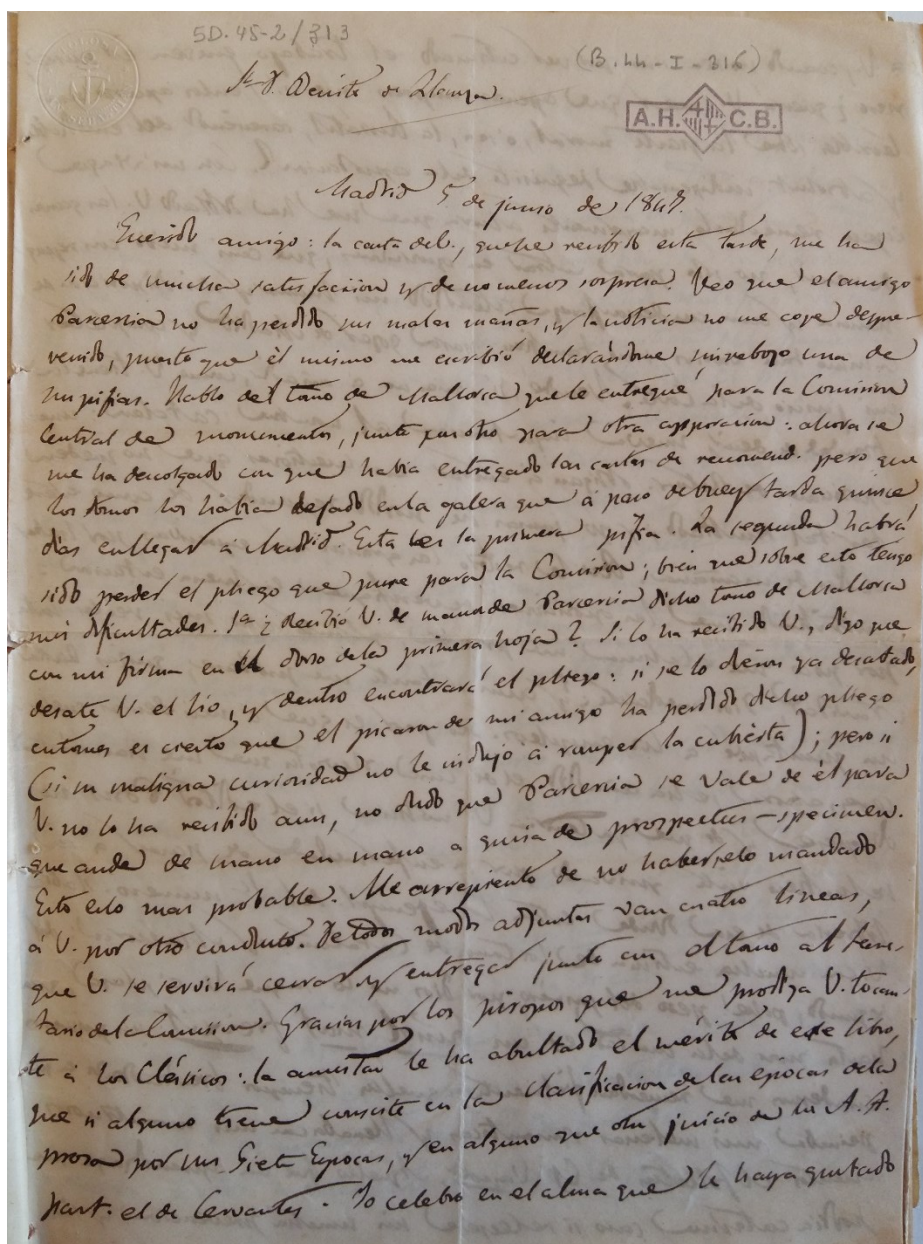 5D. 45-2/313
(B. 44-I-316)
Sr. D. Benito de Llanza.
A.H. C.B.
Madrid 5 de junio de 1847.
Querido amigo: la carta de V., que he recibido esta tarde, me ha
sido de mucha satisfaccion y de no menos sorpresa. Veo que el amigo
Parcerisa no ha perdido sus malas mañas, y la noticia no me coge despre-
venido, puesto que él mismo me escribió declarándome sin rebozo una de
sus pifias. Hablo del tomo de Mallorca que le entregué para la Comision
Central de monumentos, junto con otro para otra corporacion: ahora se
me ha descolgado con que habia entregado las cartas de recomend. pero que
los tomos los habia dejado en la galera que á paso de buey tarda quince
dias en llegar á Madrid. Esta es la primera pifia. La segunda habrá
sido perder el pliego que puse para la Comision; bien que sobre esto tengo
mis dificultades. 1a ¿Recibió V. de mano de Parcerisa dicho tomo de Mallorca
con mi firma en el dorso de la primera hoja? Si lo ha recibido V., digo que
desate V. el lio, y dentro encontrará el pliego: si se lo dieron ya desatado,
entonces es cierto que el picaron de mi amigo ha perdido dicho pliego
(si su maligna curiosidad no le indujo á romper la cubierta); pero si
V. no lo ha recibido aun, no dudo que Parcerisa se vale de él para
que ande de mano en mano a guisa de prospectus-specimen.
Esto es lo mas probable. Me arrepiento de no habérselo mandado
á V. por otro conducto. De todos modos adjuntas van cuatro lineas,
que V. se servirá cerrar y entregar junto con el tomo al Secre-
tario de la Comision. Gracias por los piropos que me prodiga V. tocan-
te á los Clásicos: la amistad le ha abultado el mérito de este libro,
que si alguno tiene consiste en la clasificacion de las épocas de la
prosa por sus Siete Epocas, y en alguno que otro juicio de los A. A.
part. el de Cervantes. Yo celebro en el alma que le haya gustado